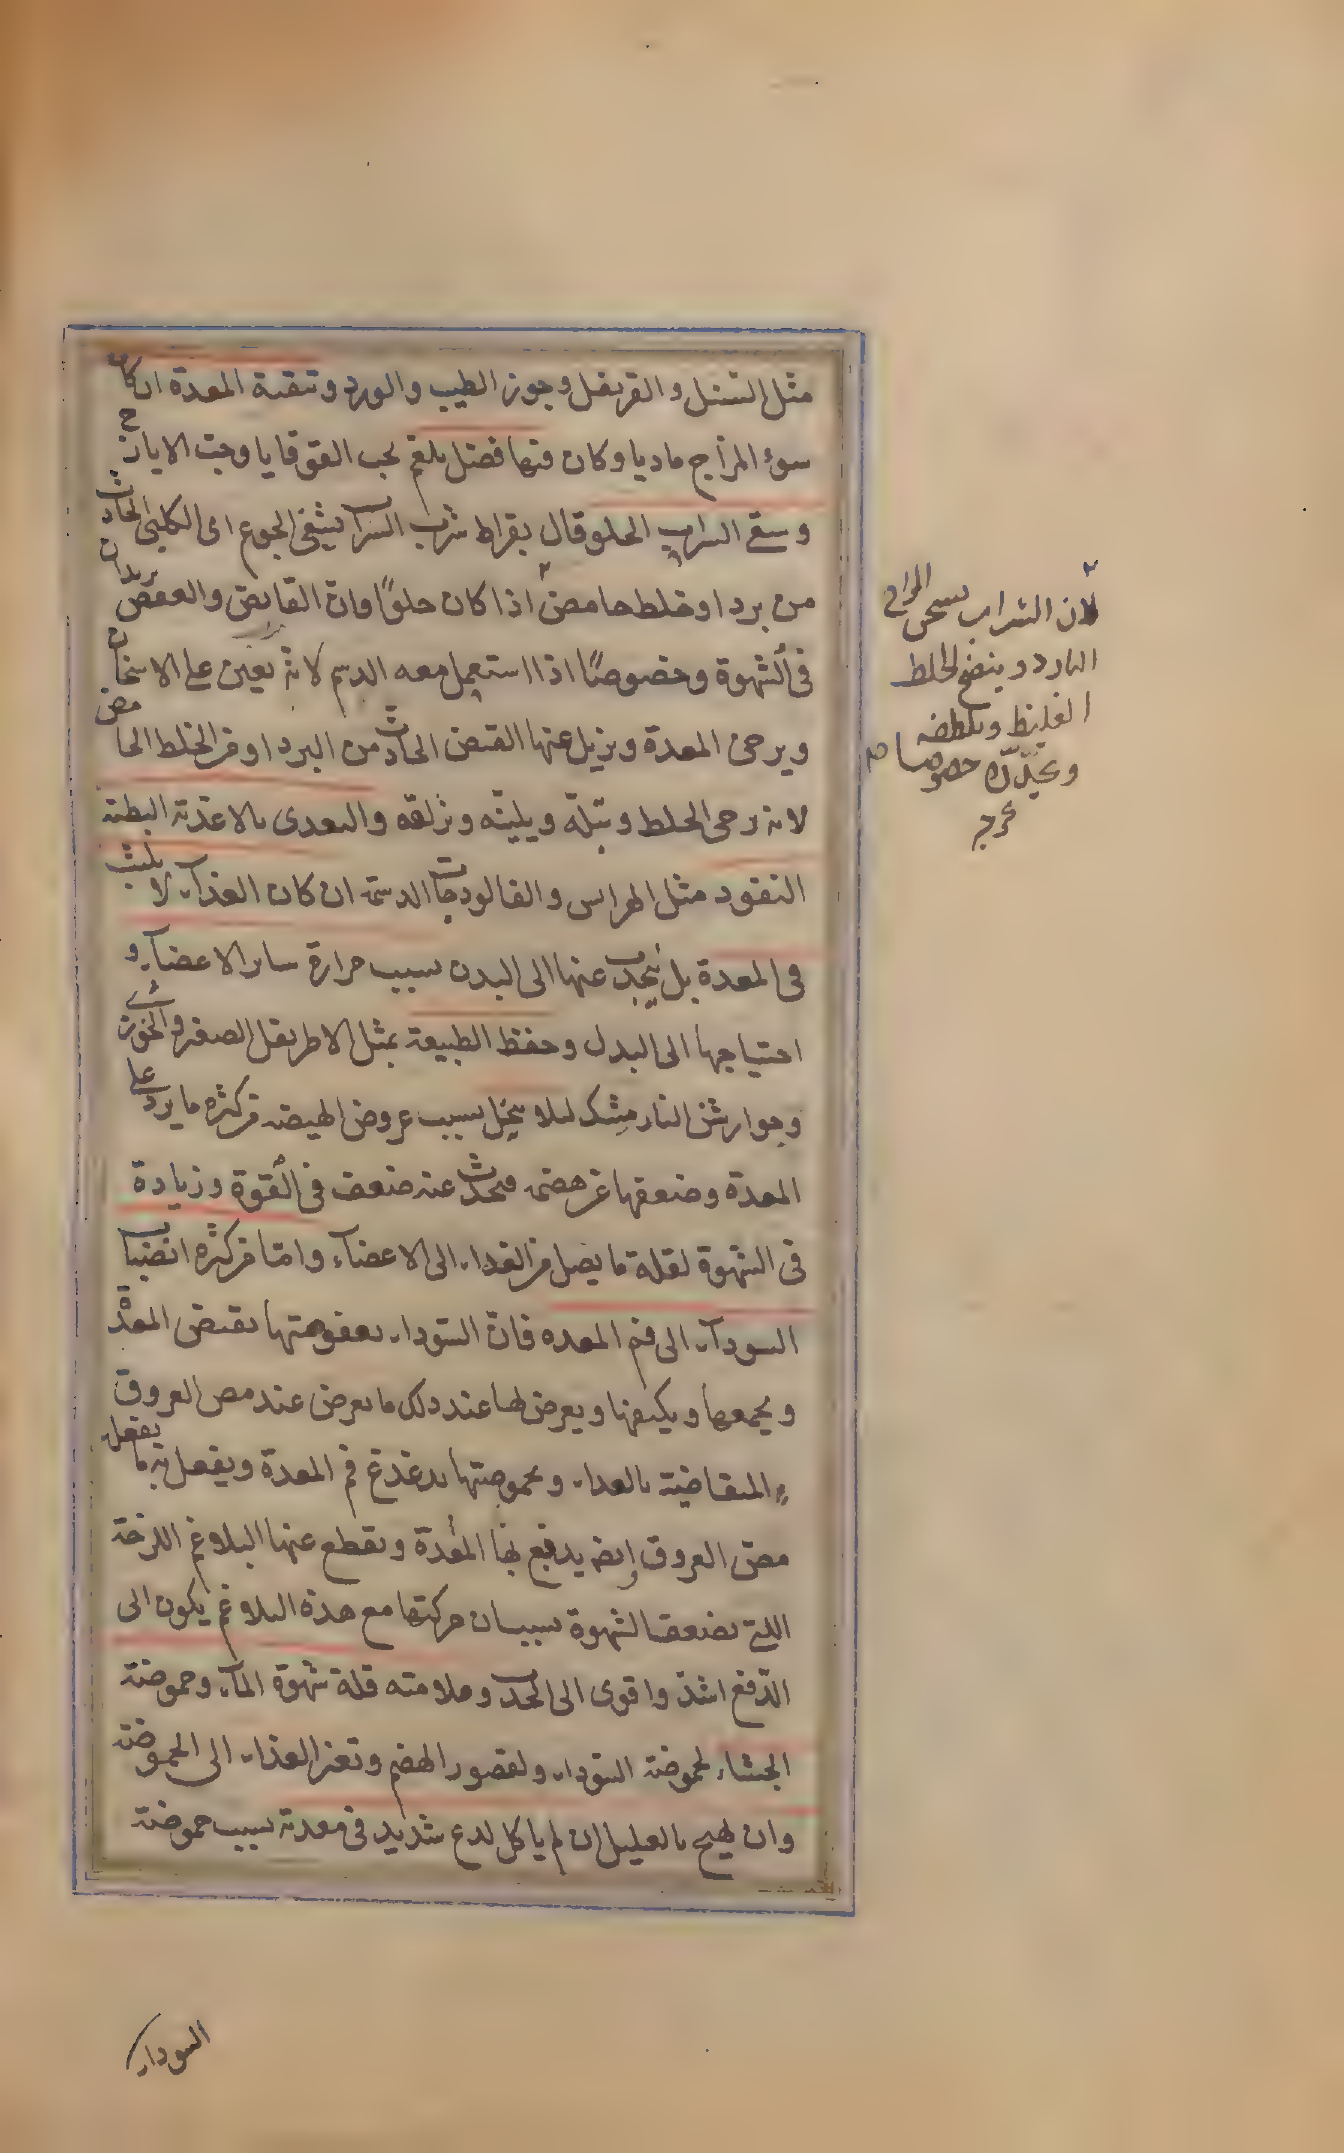 مثل السنبل و القرنفل وجوز الطيب والورد وتنقية المعدة ان كان
سوء المزاج ماديا وكان فيها فضل بلغم بحب القوقايا وحب الايارج
وسقي الشراب الحلو قال بقراط شرب الشراب يشفي الجوع اى الكلبى الحادث
من برد او خلط حامض اذا كان حلوًا وان القابض والعفص يزيدان
في الشهوة وخصوصًا اذا استعمل معه الدسم لانه يعين على الاسخان
ويرخى المعدة ويزيل عنها القبض الحادث من البرد او من الخلط الحامض
لانه يرخى الخلط ويبلّه ويلينه ويزلقه والتغذى بالاغذية البطيئة
النفوذ مثل الهراس والفالوذجات الدسمة ان كان الغذآء لا يلبث
فى المعدة بل ينجذب عنها الى البدن بسبب حرارة ساير الاعضآء و
احتياجها الى البدل وحفظ الطبيعة بمثل الاطريفل الصغير والخوزى
وجوارشن النارمشك لئلا ينحل بسبب عروض الهيضه من كثره ما يرد على
المعدة وضعفها عن هضمه فيحدث عنه ضعف في القوة وزيادة
فى الشهوة لقلة ما يصل من الغداء الى الاعضآء واما من كثره انصباب
السودآء الى فم المعده فان السوداء بعفوصتها تقبض المعدة
ويجمعها ويكثفها ويعرض لها عند ذلك ما يعرض عند مص العروق
المتقاضية بالغداء وبحموضتها يدغدغ فم المعدة ويفعل به ما يفعل
مص العروق ايضه يدفع بها المعدة وتقطع عنها البلاغم اللزجة
اللتى تضعف الشهوة بسبب ان حركتها مع هذه البلاغم يكون الى
الدفع اشد واقوى الى الجذب وعلامته قلة شهوة المآء وحموضة
الجشاء لحموضة السوداء ولقصور الهضم وتغير الغذاء الى الحموضة
وان يهيج بالعليل ان لم ياكل لدع شديد فى معدته بسبب حموضة
السوداء
٢
لان الشراب يسخن المزاج
البارد وينضج الخلط
الغليظ ويلطفه
خصوصا